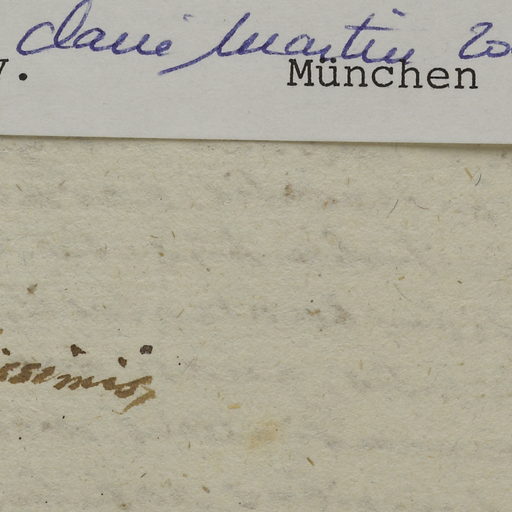 Clavi Martin 20
V. München
issimis,